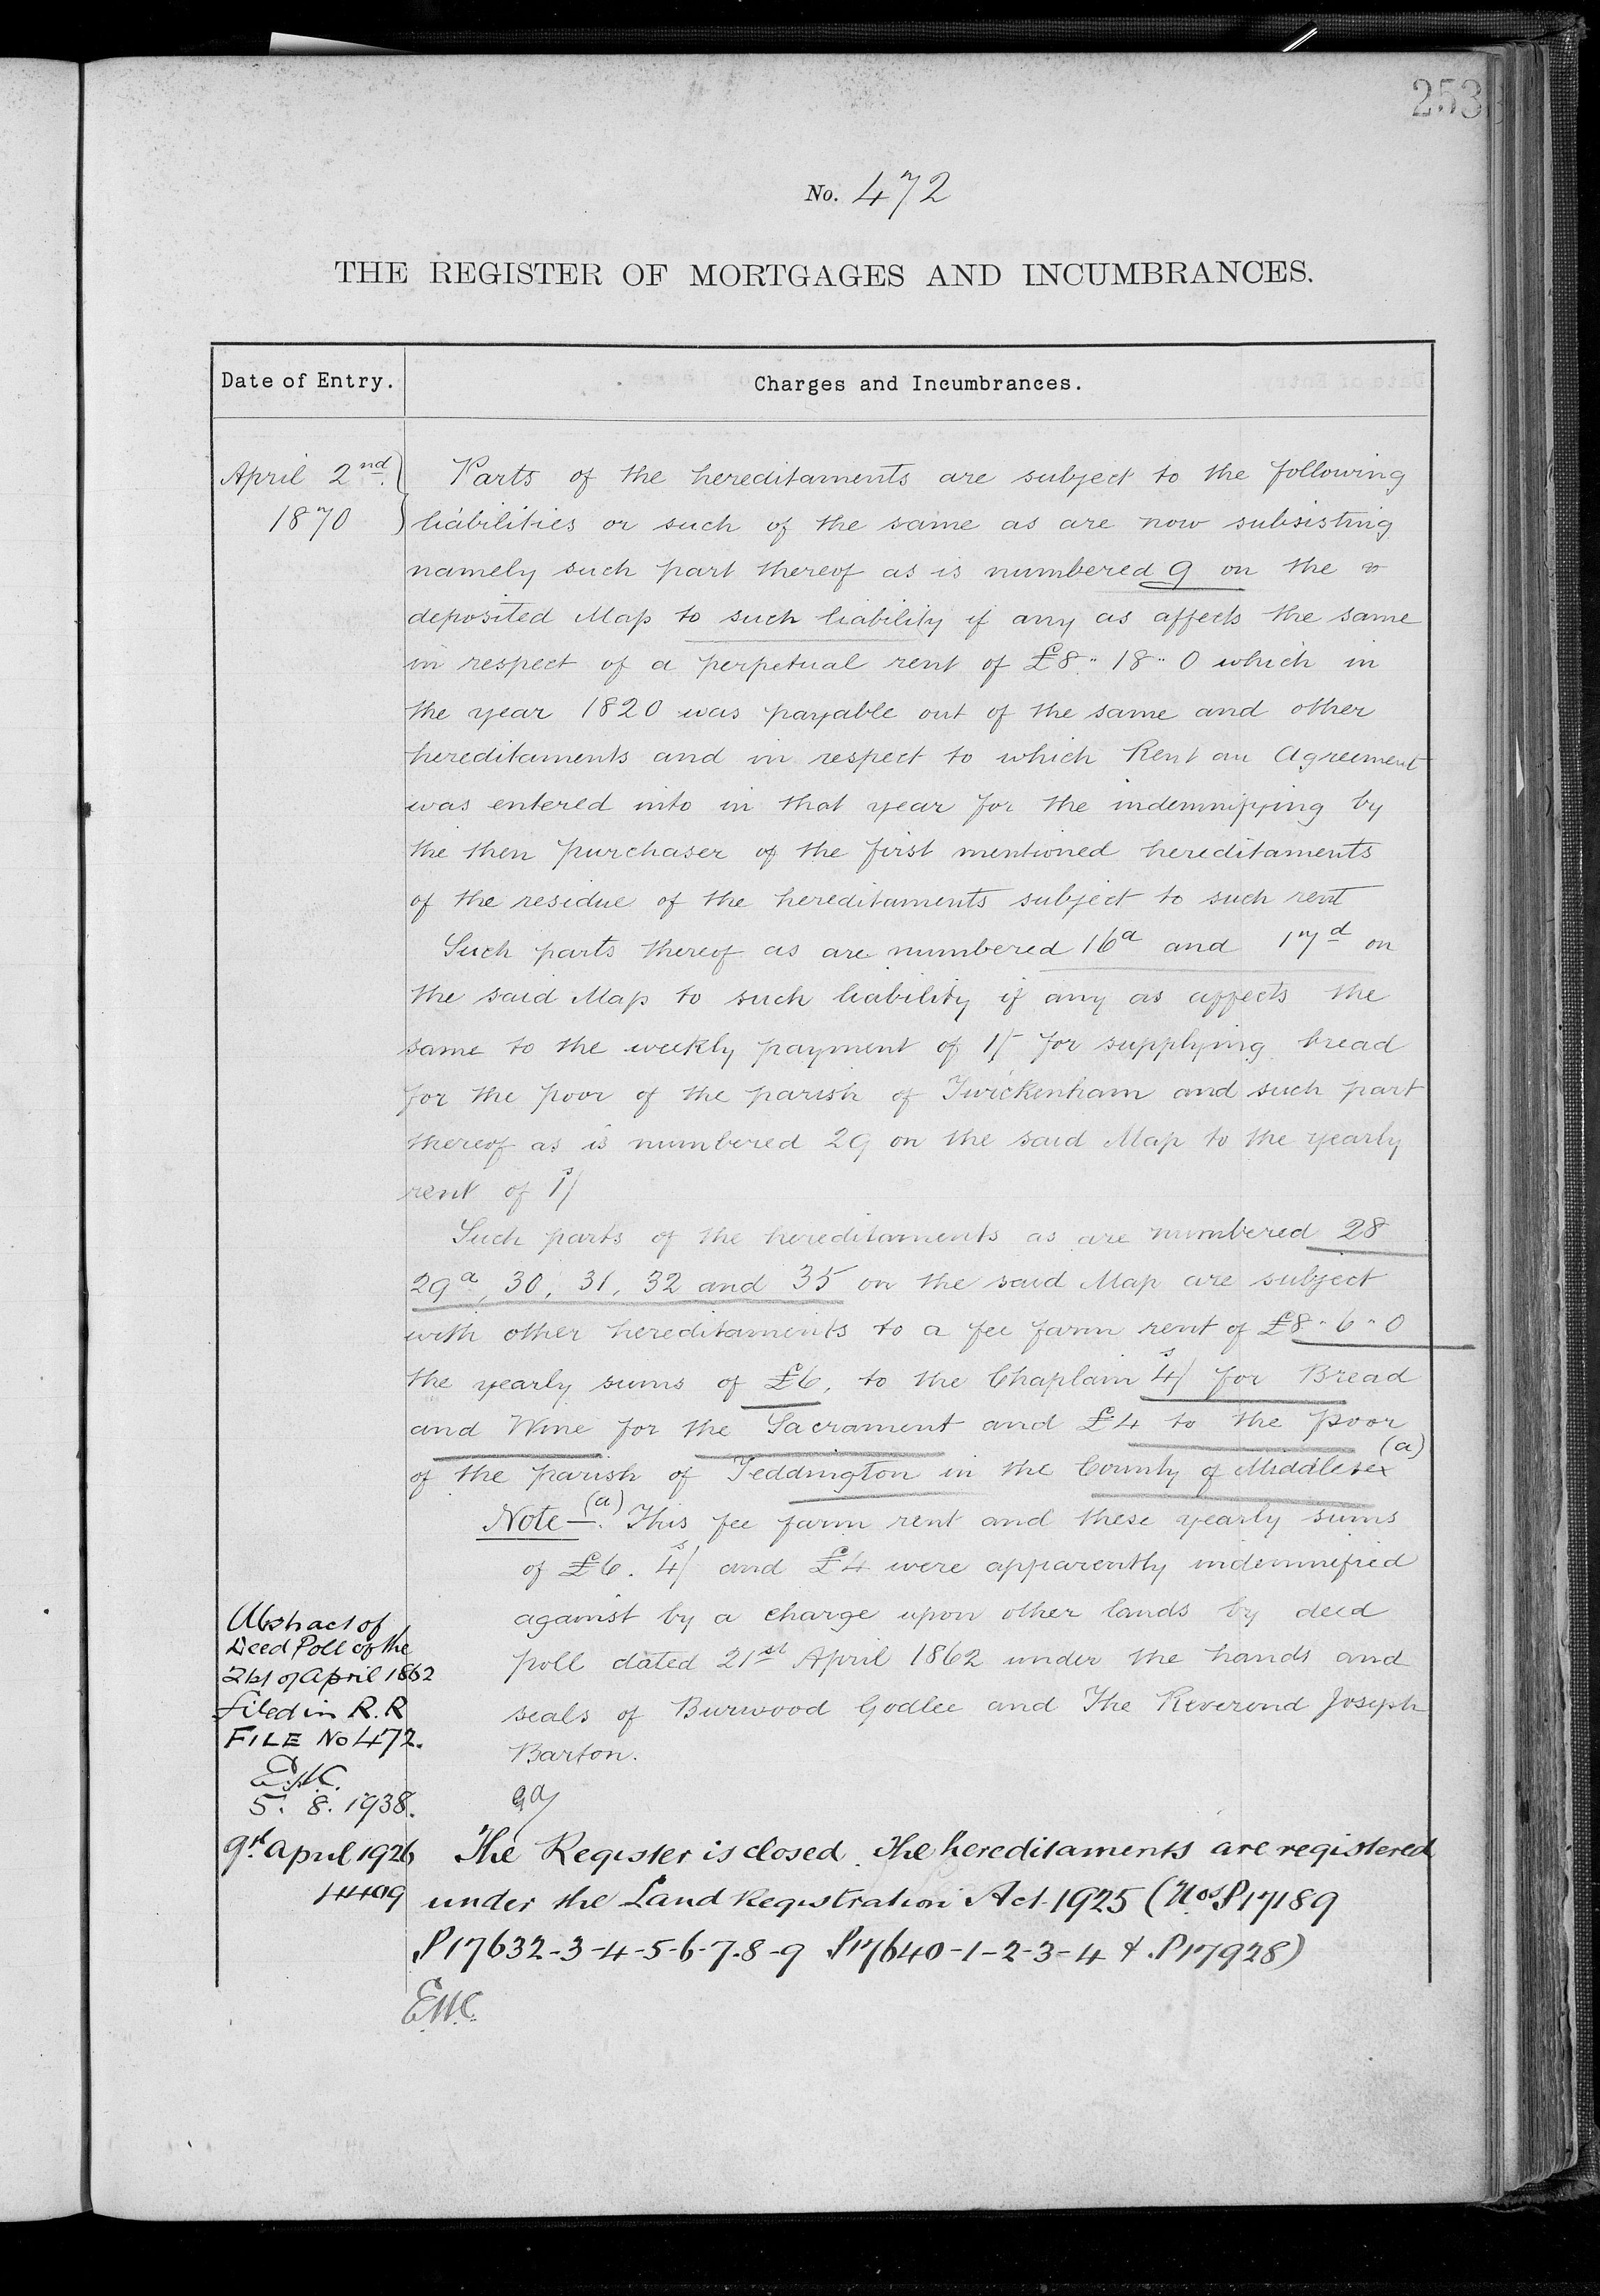 253
No. 472
THE REGISTER OF MORTGAGES AND INCUMBRANCES.
Date of Entry.
Charges and Incumbrances.
April 2nd
1870
Parts of the hereditaments are subject to the following
liabilities or such of the same as are now subsisting
namely such part thereof as is numbered 9 on the
deposited Map to such liability if any as affects the same
in respect of a perpetual rent of £8"18"0 which in
the year 1820 was payable out of the same and other
hereditaments and in respect to which Rent an Agreement
was entered into in that year for the indemnifying by
the then purchaser of the first mentioned hereditaments
of the residue of the hereditaments subject to such rent
Such parts thereof as are numbered 16a and 17d on
the said Map to such liability if any as affects the
same to the weekly payment of 1/- for supplying bread
for the poor of the parish of Twickenham and such part
thereof as is numbered 29 on the said Map to the yearly
rent of 1s/
Such parts of the hereditaments as are numbered 28
29a, 30, 31, 32 and 35 on the said Map are subject
with other hereditaments to a fee farm rent of £8"6"0
the yearly sums of £6, to the Chaplain 4s/ for Bread
and Wine for the Sacrament and £4 to the poor
of the parish of Teddington in the County of Middlesex (a)
Note (a). This fee farm rent and these yearly sums
of £6. 4s/ and £4 were apparently indemnified
against by a charge upon other lands by deed
poll dated 21st April 1862 under the hands and
seals of Burwood Godlee and The Reverend Joseph
Barton.
Abstract of
Deed Poll of the
21st of April 1862
filed in R.R
FILE No 472.
5. 8. 1938.
9th April 1926
The Register is closed. The hereditaments are registered
under the Land Registration Act 1925 (Nos P17189
P17632-3-4-5-6-7-8-9 P17640-1-2-3-4 & P17928)